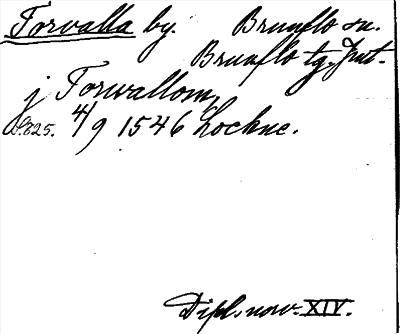 Torvalla by. Brunflo sn.
Brunflo tg. Jmt.
j Torwallom,
S. 825. 4/9 1546 Lockne.
Dipl. norv. XIV.